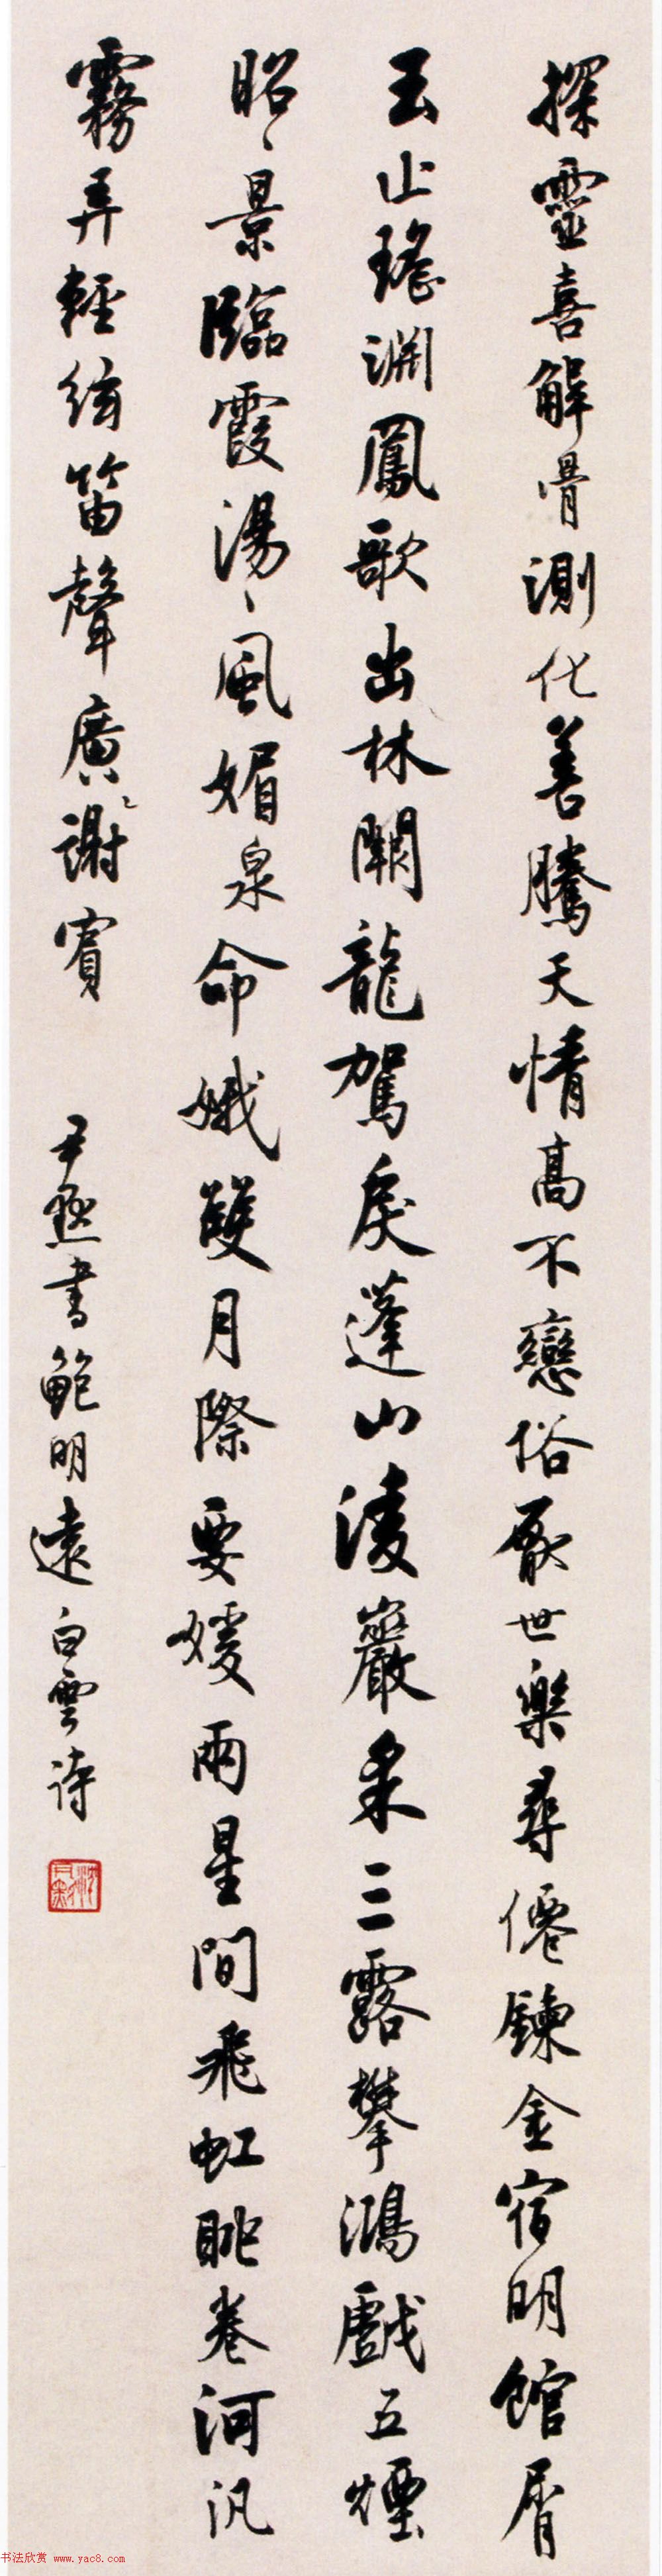 探靈喜解骨測化善騰天情高不戀俗厭世樂尋僊鍊金宿明館屑
玉止瑤淵鳳歌出林闕龍駕戾蓬山淩巖采三露攀鴻戲五煙
昭〻景臨霞湯〻風媚泉命娥雙月際要媛兩星間飛虹眺卷河汎
霧弄輕絃笛聲廣謝賓 尹默書鮑明遠白雲詩
书法欣赏 www.yac8.com